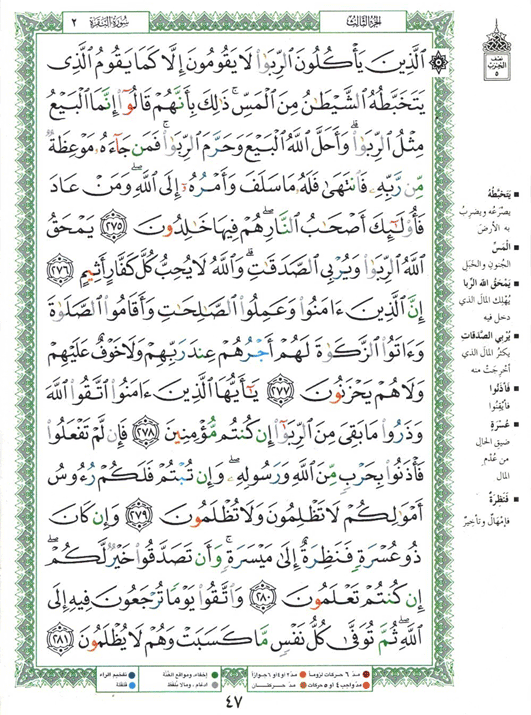 سُورَةُ البَقَرَة ٢
الجزء الثالث
نصف
الحزب
٥
ٱلَّذِينَ يَأۡكُلُونَ ٱلرِّبَوٰاْ لَا يَقُومُونَ إِلَّا كَمَا يَقُومُ ٱلَّذِي
يَتَخَبَّطُهُ ٱلشَّيۡطَٰنُ مِنَ ٱلۡمَسِّۚ ذَٰلِكَ بِأَنَّهُمۡ قَالُوٓاْ إِنَّمَا ٱلۡبَيۡعُ
مِثۡلُ ٱلرِّبَوٰاْۗ وَأَحَلَّ ٱللَّهُ ٱلۡبَيۡعَ وَحَرَّمَ ٱلرِّبَوٰاْۚ فَمَن جَآءَهُۥ مَوۡعِظَةٞ
مِّن رَّبِّهِۦ فَٱنتَهَىٰ فَلَهُۥ مَا سَلَفَ وَأَمۡرُهُۥٓ إِلَى ٱللَّهِۖ وَمَنۡ عَادَ
فَأُوْلَٰٓئِكَ أَصۡحَٰبُ ٱلنَّارِۖ هُمۡ فِيهَا خَٰلِدُونَ ٢٧٥ يَمۡحَقُ
ٱللَّهُ ٱلرِّبَوٰاْ وَيُرۡبِي ٱلصَّدَقَٰتِۗ وَٱللَّهُ لَا يُحِبُّ كُلَّ كَفَّارٍ أَثِيمٍ ٢٧٦
إِنَّ ٱلَّذِينَ ءَامَنُواْ وَعَمِلُواْ ٱلصَّٰلِحَٰتِ وَأَقَامُواْ ٱلصَّلَوٰةَ
وَءَاتَوُاْ ٱلزَّكَوٰةَ لَهُمۡ أَجۡرُهُمۡ عِندَ رَبِّهِمۡ وَلَا خَوۡفٌ عَلَيۡهِمۡ
وَلَا هُمۡ يَحۡزَنُونَ ٢٧٧ يَٰٓأَيُّهَا ٱلَّذِينَ ءَامَنُواْ ٱتَّقُواْ ٱللَّهَ
وَذَرُواْ مَا بَقِيَ مِنَ ٱلرِّبَوٰٓاْ إِن كُنتُم مُّؤۡمِنِينَ ٢٧٨ فَإِن لَّمۡ تَفۡعَلُواْ
فَأۡذَنُواْ بِحَرۡبٖ مِّنَ ٱللَّهِ وَرَسُولِهِۦۖ وَإِن تُبۡتُمۡ فَلَكُمۡ رُءُوسُ
أَمۡوَٰلِكُمۡ لَا تَظۡلِمُونَ وَلَا تُظۡلَمُونَ ٢٧٩ وَإِن كَانَ
ذُو عُسۡرَةٖ فَنَظِرَةٌ إِلَىٰ مَيۡسَرَةٖۚ وَأَن تَصَدَّقُواْ خَيۡرٞ لَّكُمۡ
إِن كُنتُمۡ تَعۡلَمُونَ ٢٨٠ وَٱتَّقُواْ يَوۡمٗا تُرۡجَعُونَ فِيهِ إِلَى
ٱللَّهِۖ ثُمَّ تُوَفَّىٰ كُلُّ نَفۡسٖ مَّا كَسَبَتۡ وَهُمۡ لَا يُظۡلَمُونَ ٢٨١
يَتَخَبَّطُهُ
يصرعُه ويضربُ
به الأرضَ
المَسِّ
الجُنونِ والخَبَلِ
يَمْحَقُ الله الرِّبا
يُهلِكُ المالَ الذي
دخلَ فيه
يُرْبي الصَّدقاتِ
يكثّرُ المالَ الذي
أُخْرِجَتْ منه
فَأْذَنُوا
فأيْقِنُوا
عُسْرَةٍ
ضيقِ الحالِ
من عُدْمِ
المالِ
فَنَظِرَةٌ
فإمْهالٌ وتأخيرٌ
مدّ ٦ حركات لزوماً
مدّ ٢ أو ٤ أو ٦ جوازاً
إخفاء، ومواقع الغُنَّة
تفخيم الراء
مدّ واجب ٤ أو ٥ حركات
مدّ حركتان
إدغام، ومالا يُلفظ
قلقلة
٤٧